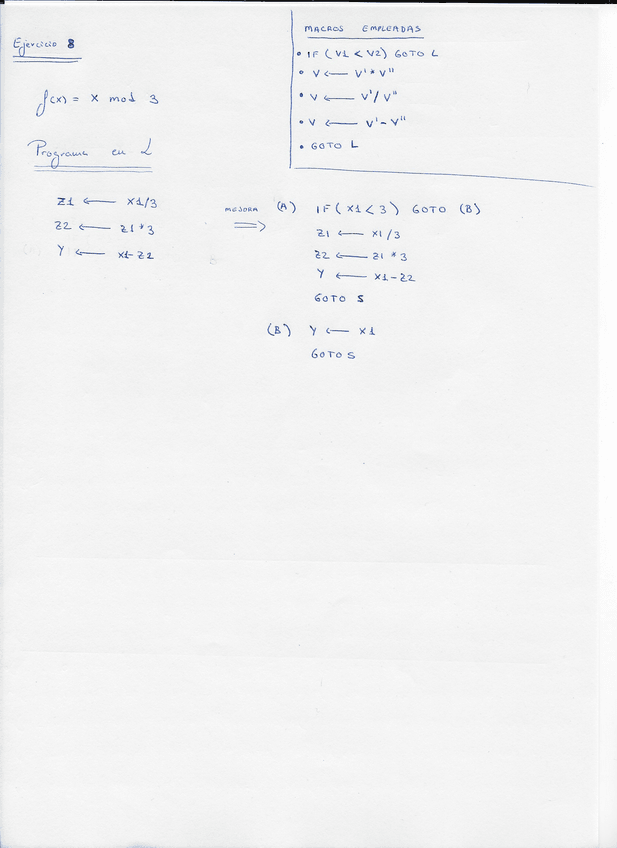 Ejercicio 8
f(x) = x mod 3
Programa en L
Z1 ← X1/3
Z2 ← Z1 * 3
Y ← X1-Z2
MACROS EMPLEADAS
• IF (V1 < V2) GOTO L
• V ← V' * V''
• V ← V' / V''
• V ← V' - V''
• GOTO L
MEJORA ⇒
(A) IF (X1 < 3) GOTO (B)
Z1 ← X1/3
Z2 ← Z1 * 3
Y ← X1-Z2
GOTO S
(B) Y ← X1
GOTO S